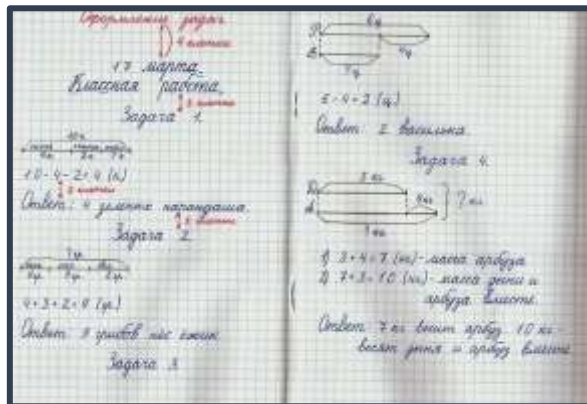 Оформление задач
4 клетки
17 марта.
Классная работа.
2 клетки
Задача 1.
10 к.
4 к. 2 к. ? к.
10 - 4 - 2 = 4 (к.)
2 клетки
Ответ: 4 зелёных карандаша.
2 клетки
Задача 2
? гр.
4 гр. 3 гр. 2 гр.
4 + 3 + 2 = 9 (гр.)
Ответ: 9 грибов нёс ёжик
Задача 3
6 ц
Р.
4 ц
В.
? ц
6 - 4 = 2 (ц.)
Ответ: 2 василька.
Задача 4.
3 кг
Д.
4 кг
? кг
А.
? кг
1) 3 + 4 = 7 (кг) - масса арбуза
2) 7 + 3 = 10 (кг) - масса дыни и
арбуза вместе.
Ответ: 7 кг весит арбуз. 10 кг
весят дыня и арбуз вместе